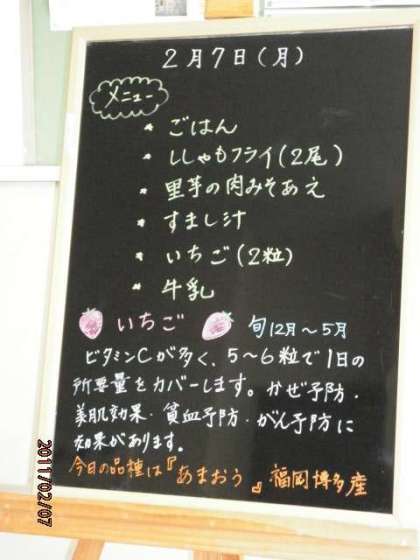 2月7日(月)
メニュー
* ごはん
* ししゃもフライ(2尾)
* 里芋の肉みそあえ
* すまし汁
* いちご(2粒)
* 牛乳
いちご 旬12月～5月
ビタミンCが多く、5～6粒で1日の
所要量をカバーします。かぜ予防・
美肌効果・貧血予防・がん予防に
効果があります。
今日の品種は『あまおう』福岡博多産
2011/02/07